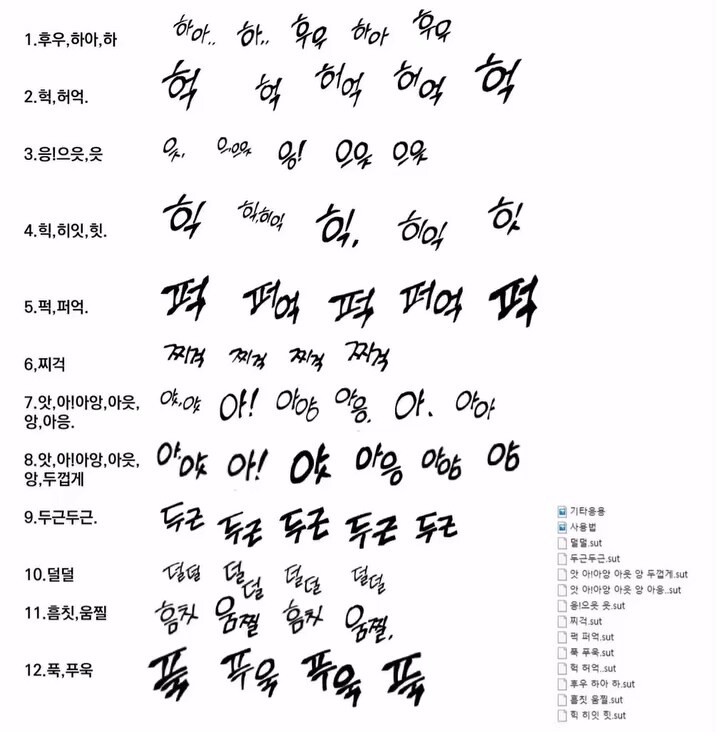 1.후우,하아,하 하아.. 하.. 훅욱 하아 후욱
2.헉,허억. 헉 헉 허억 허억 헉
3.응!으읏,읏 읏, 으,으읏 응! 으읏 으읏
4.힉,히잇,힛. 힉 히익,히익 힉, 히익 힛
5.퍽,퍼억. 퍽 퍼억 퍽 퍼억 퍽
6,찌걱 찌걱 찌걱 찌걱 찌걱
7.앗,아!아앙,아읏, 앗,앗 아! 아앙 아응. 아. 아아
앙,아응.
8.앗,아!아앙,아읏, 아,앗 아! 앗 아응 아앙 앙
앙,두껍게
9.두근두근. 두근 두근 두근 두근 두근
10.덜덜 덜덜 덜덜 덜덜 덜덜
11.흠칫,움찔 흠칫 움찔 흠칫 움찔,
12.푹,푸욱 푹 푸욱 푸욱 푹
기타응용
사용법
덜덜.sut
두근두근.sut
앗 아!아앙 아읏 앙 두껍게.sut
앗 아!아앙 아읏 앙 아응..sut
응!으읏 읏.sut
찌걱.sut
퍽 퍼억.sut
푹 푸욱.sut
헉 허억..sut
후우 하아 하.sut
흠칫 움찔.sut
힉 히잇 힛.sut